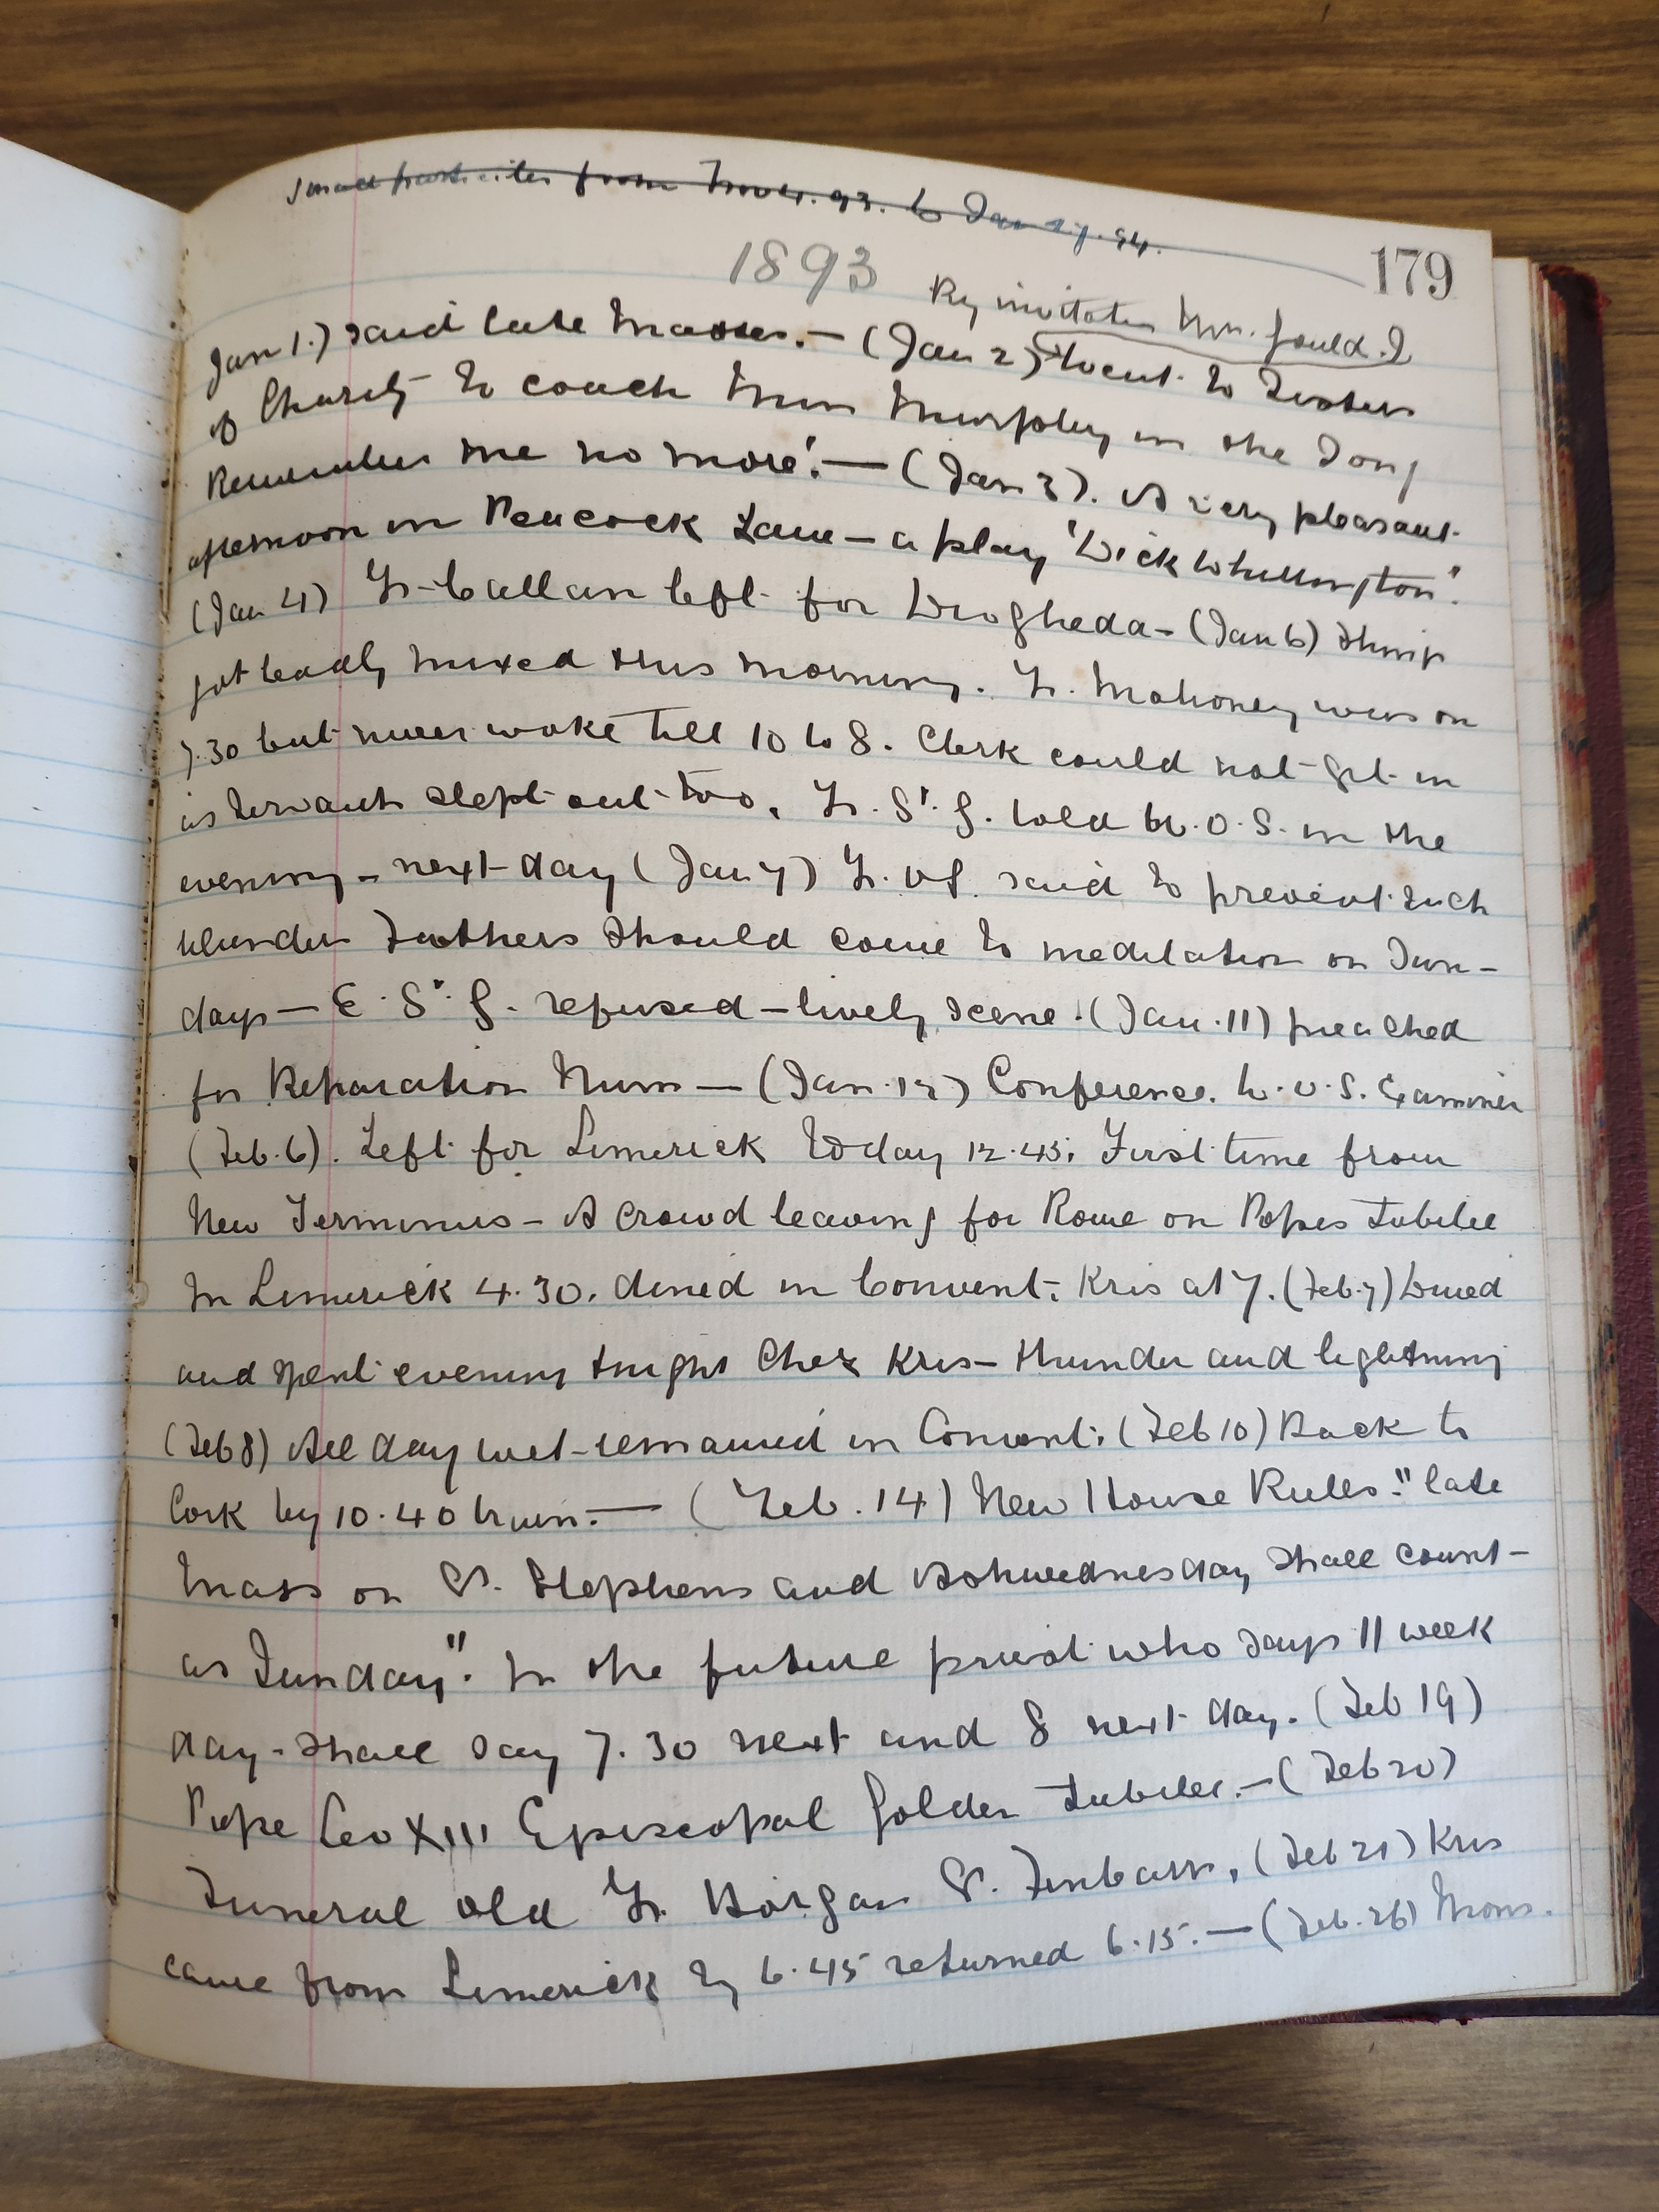 from Novr. 93. to Jan 27. 94.
179
1893
By invitation Mrs. Gould. I
Jan 1.) said late Masses. — (Jan 2) went to Sisters
of Charity to coach Miss Murphy in the Song
Remember me no more'. — (Jan 3). A very pleasant
afternoon in Peacock Lane — a play 'Dick Whittington'.
(Jan 4) Fr. Callan left for Drogheda — (Jan 6) Things
got badly mixed this morning. Fr. Mahoney was on
7.30 but never woke till 10 to 8. Clerk could not get in
as servants slept out too. Fr. S'. G. told W. O. S. in the
evening — next day (Jan 7) Fr. said to prevent such
blunders Fathers should come to meditation on Sun-
days — E. S'. G. refused — lively scene. (Jan. 11) preached
for Reparation Nuns — (Jan. 12) Conference. W. O. S. Examiner
(Feb. 6). Left for Limerick today 12.45. First time from
New Terminus — A crowd leaving for Rome on Popes Jubilee
In Limerick 4.30. dined in Convent. Kris at 7. (Feb. 7) Dined
and spent evening tonight Chez Kris — thunder and lightning
(Feb 8) All day wet — remained in Convent. (Feb 10) Back to
Cork by 10.40 train. — (Feb. 14) New House Rules. "late
Mass on St. Stephens and Ashwednesday shall count
as Sunday". In the future priest who says 11 week
day — shall say 7.30 next and 8 next day. (Feb 19)
Pope Leo XIII Episcopal Golden Jubilee. — (Feb 20)
Funeral old Fr. Horgan St. Finbarrs. (Feb 21) Kris
came from Limerick by 6.45 returned 6.15. — (Feb. 26) Mons.